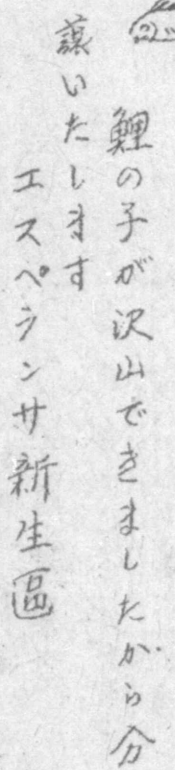 鯉の子が沢山できましたから分
譲いたします
エスペランサ新生區